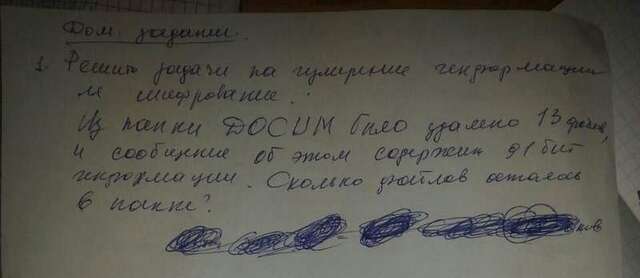 Дом. задание.
1. Решить задачи на измерение информации
и шифрование.
Из папки DOCUM было удалено 13 файлов,
и сообщение об этом содержит 91 бит
информации. Сколько файлов осталось
в папке?